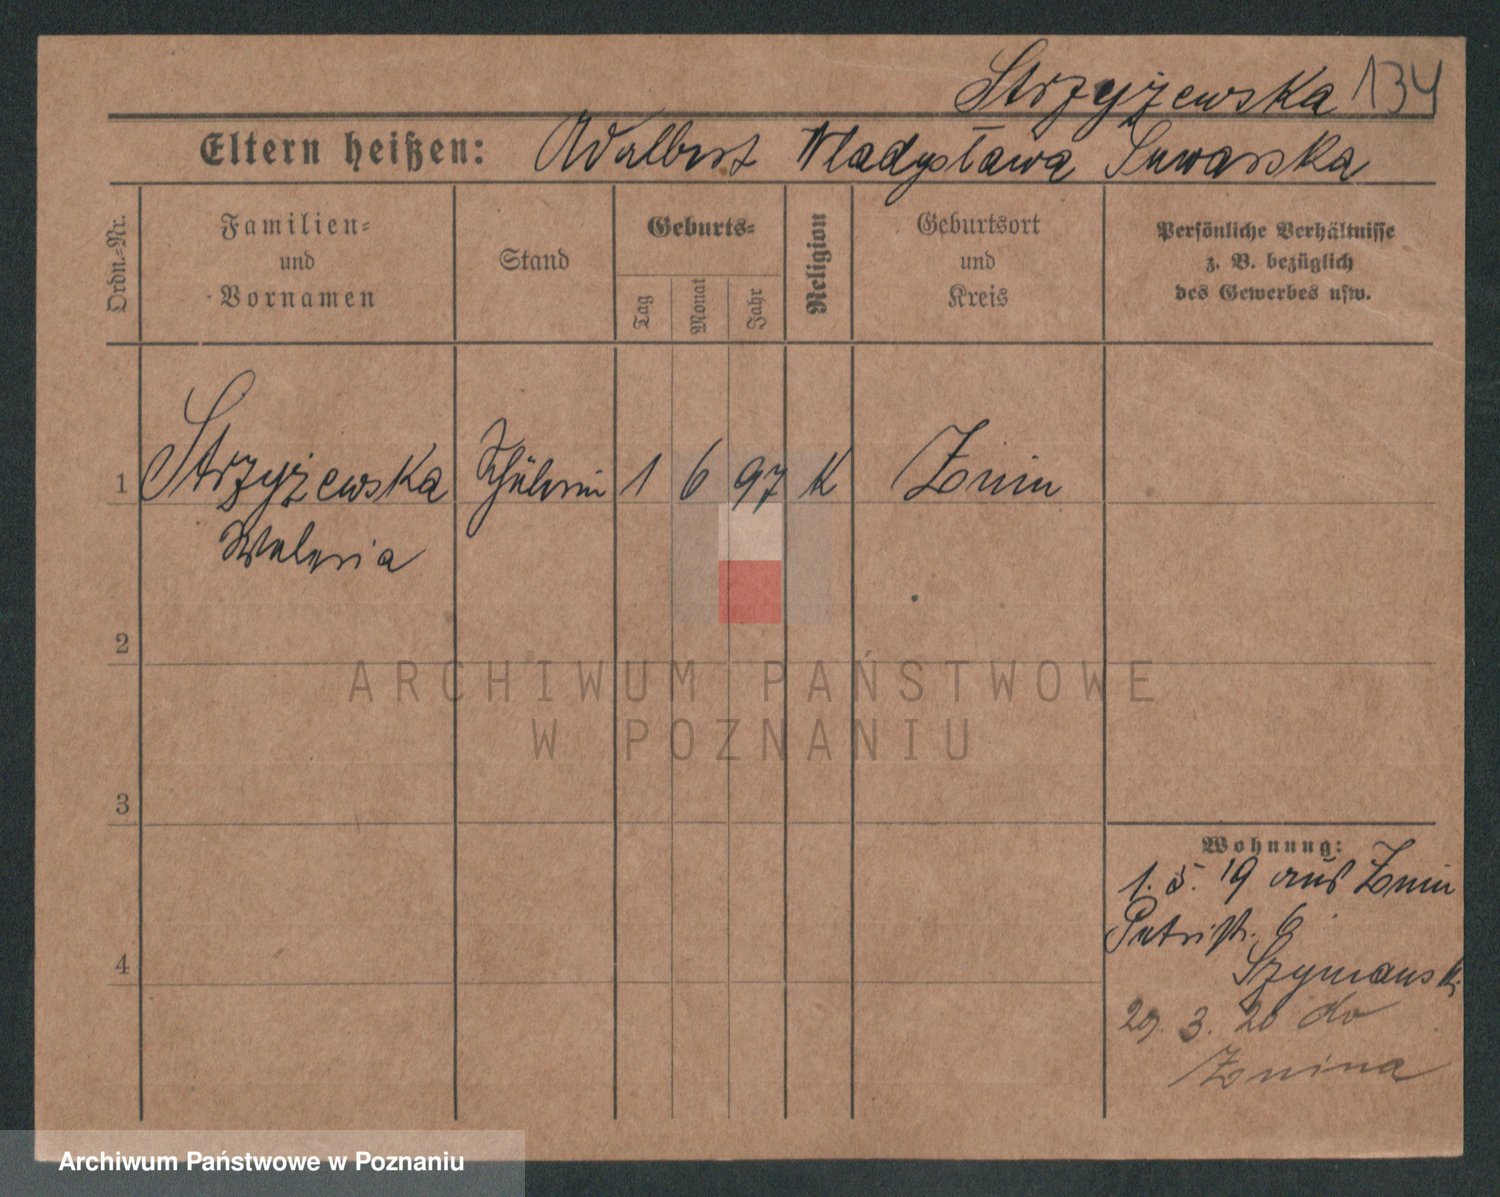 Strzyżewska 134
Eltern heißen: Adalbert Władysława Suwarska
Ordn.=Nr.
Familien=
und
Vornamen
Stand
Geburts=
Tag
Monat
Jahr
Religion
Geburtsort
und
Kreis
Persönliche Verhältnisse
z. B. bezüglich
des Gewerbes usw.
1 Strzyżewska Schülerin 1 6 97 K Znin
Waleria
2
3
4
Wohnung:
1. 5. 19 aus Znin
Petristr. 6
Szymanski
29. 3. 20 do
Znina
ARCHIWUM PAŃSTWOWE
W POZNANIU
Archiwum Państwowe w Poznaniu